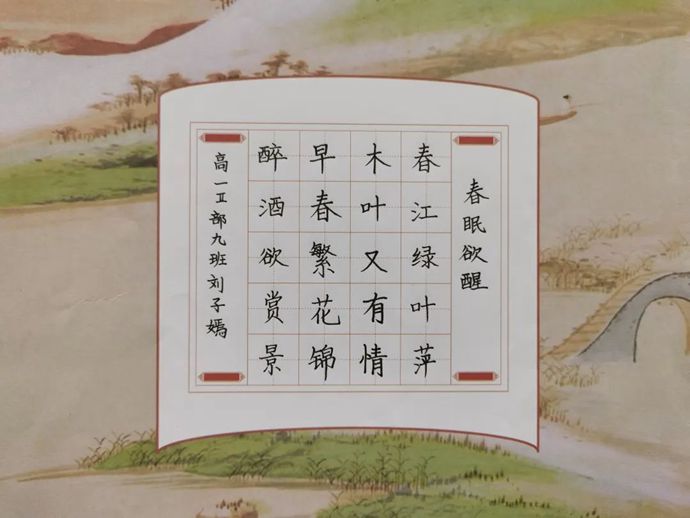 春眠欲醒
春江绿叶萍
木叶又有情
早春繁花锦
醉酒欲赏景
高一Ⅱ部九班刘子嫣